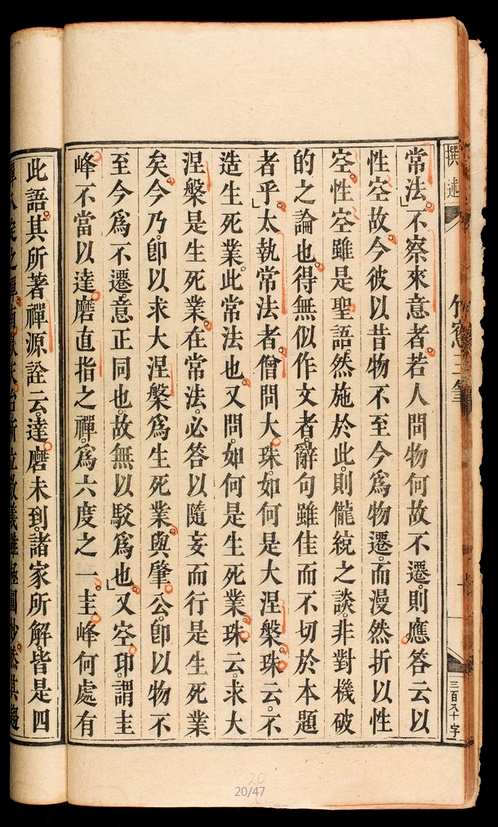 常法」不察來意者若人問物何故不遷則應答云以
性空故今彼以昔物不至今爲物遷而漫然折以性
空性空雖是聖語然施於此則儱統之談非對機破
的之論也得無似作文者辭句雖佳而不切於本題
者乎太執常法者僧問大珠如何是大涅槃珠云不
造生死業此常法也又問如何是生死業珠云求大
涅槃是生死業在常法必答以隨妄而行是生死業
矣今乃卽以求大涅槃爲生死業與肇公卽以物不
至今爲不遷意正同也故無以駁爲也」又空印謂圭
峰不當以達磨直指之禪爲六度之一圭峰何處有
此語其所著禪源詮云達磨未到諸家所解皆是四
竹窓三筆
三百八十字
20/47